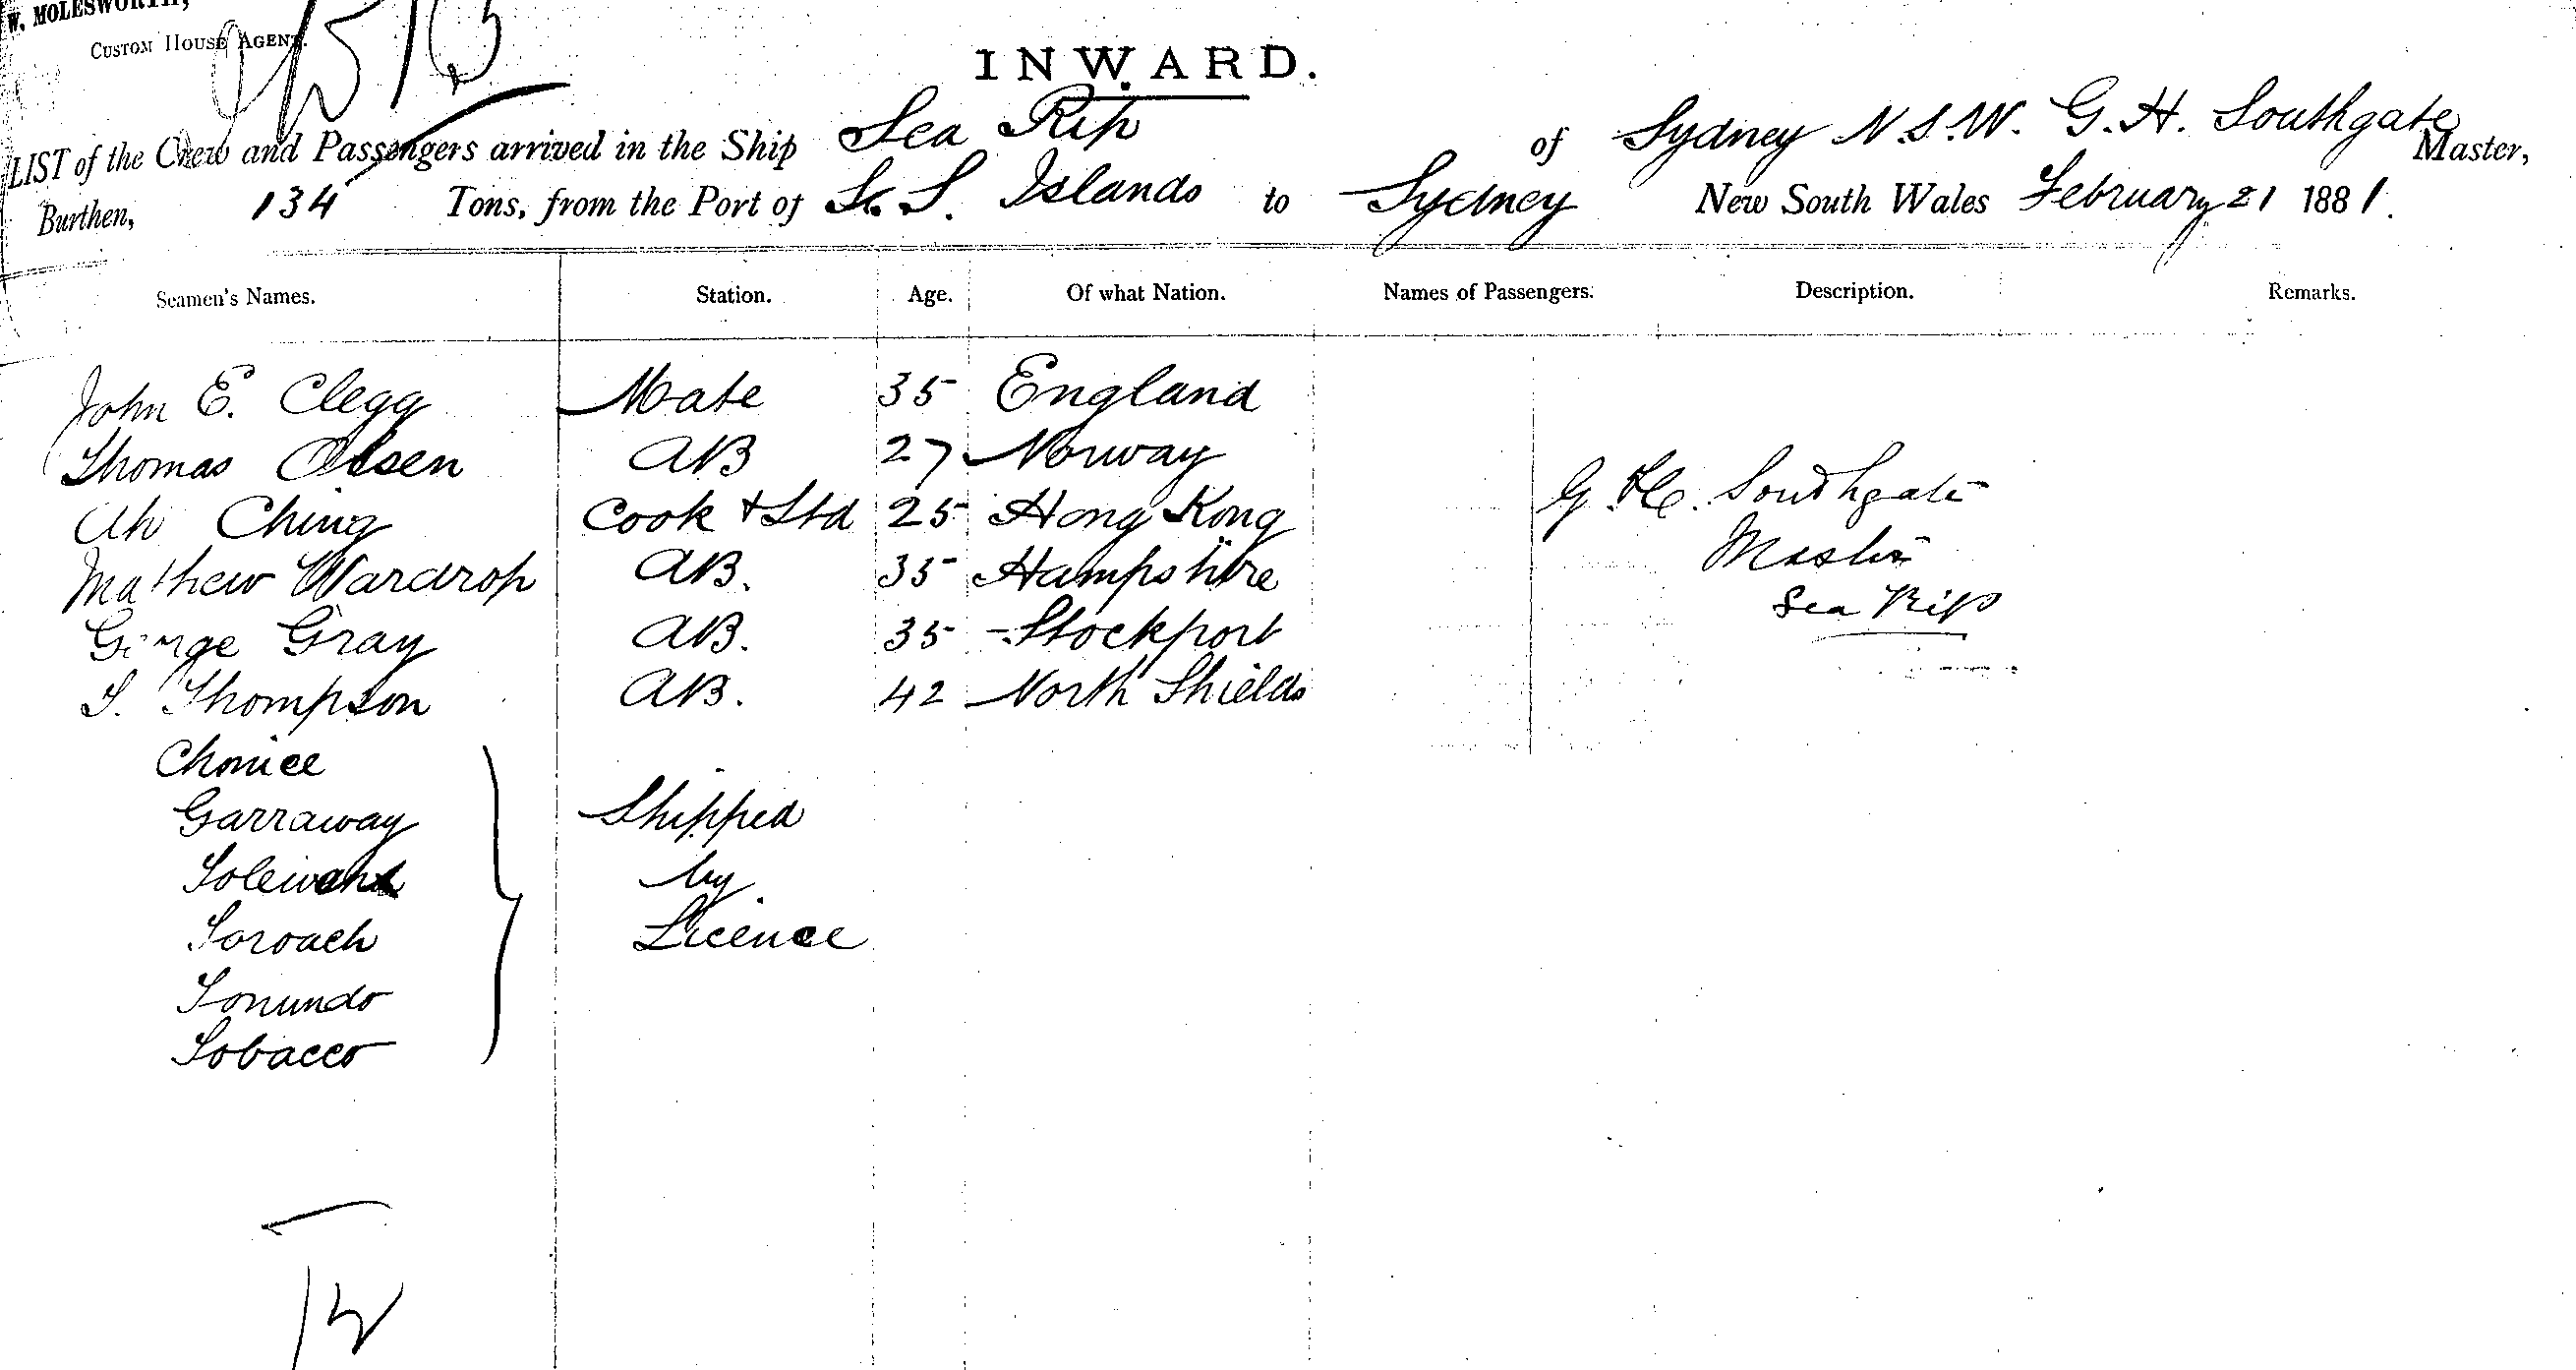 W. MOLESWORTH,
CUSTOM HOUSE AGENT.
INWARD.
LIST of the Crew and Passengers arrived in the Ship Sea Rip of Sydney N.S.W. G. H. Southgate Master,
Burthen, 134 Tons, from the Port of S. S. Islands to Sydney New South Wales February 21 1881.
Seamen's Names. Station. Age. Of what Nation. Names of Passengers. Description. Remarks.
John E. Clegg Mate 35 England
Thomas Olsen AB 27 Norway
Ah Ching Cook + Std 25 Hong Kong
Mathew Wardrop AB. 35 Hampshire
George Gray AB. 35 Stockport
T. Thompson AB. 42 North Shields
G. H. Southgate
Master
Sea Rip
Garraway Shipped
by
Toroach Licence
Tonundo
Tobacco
12